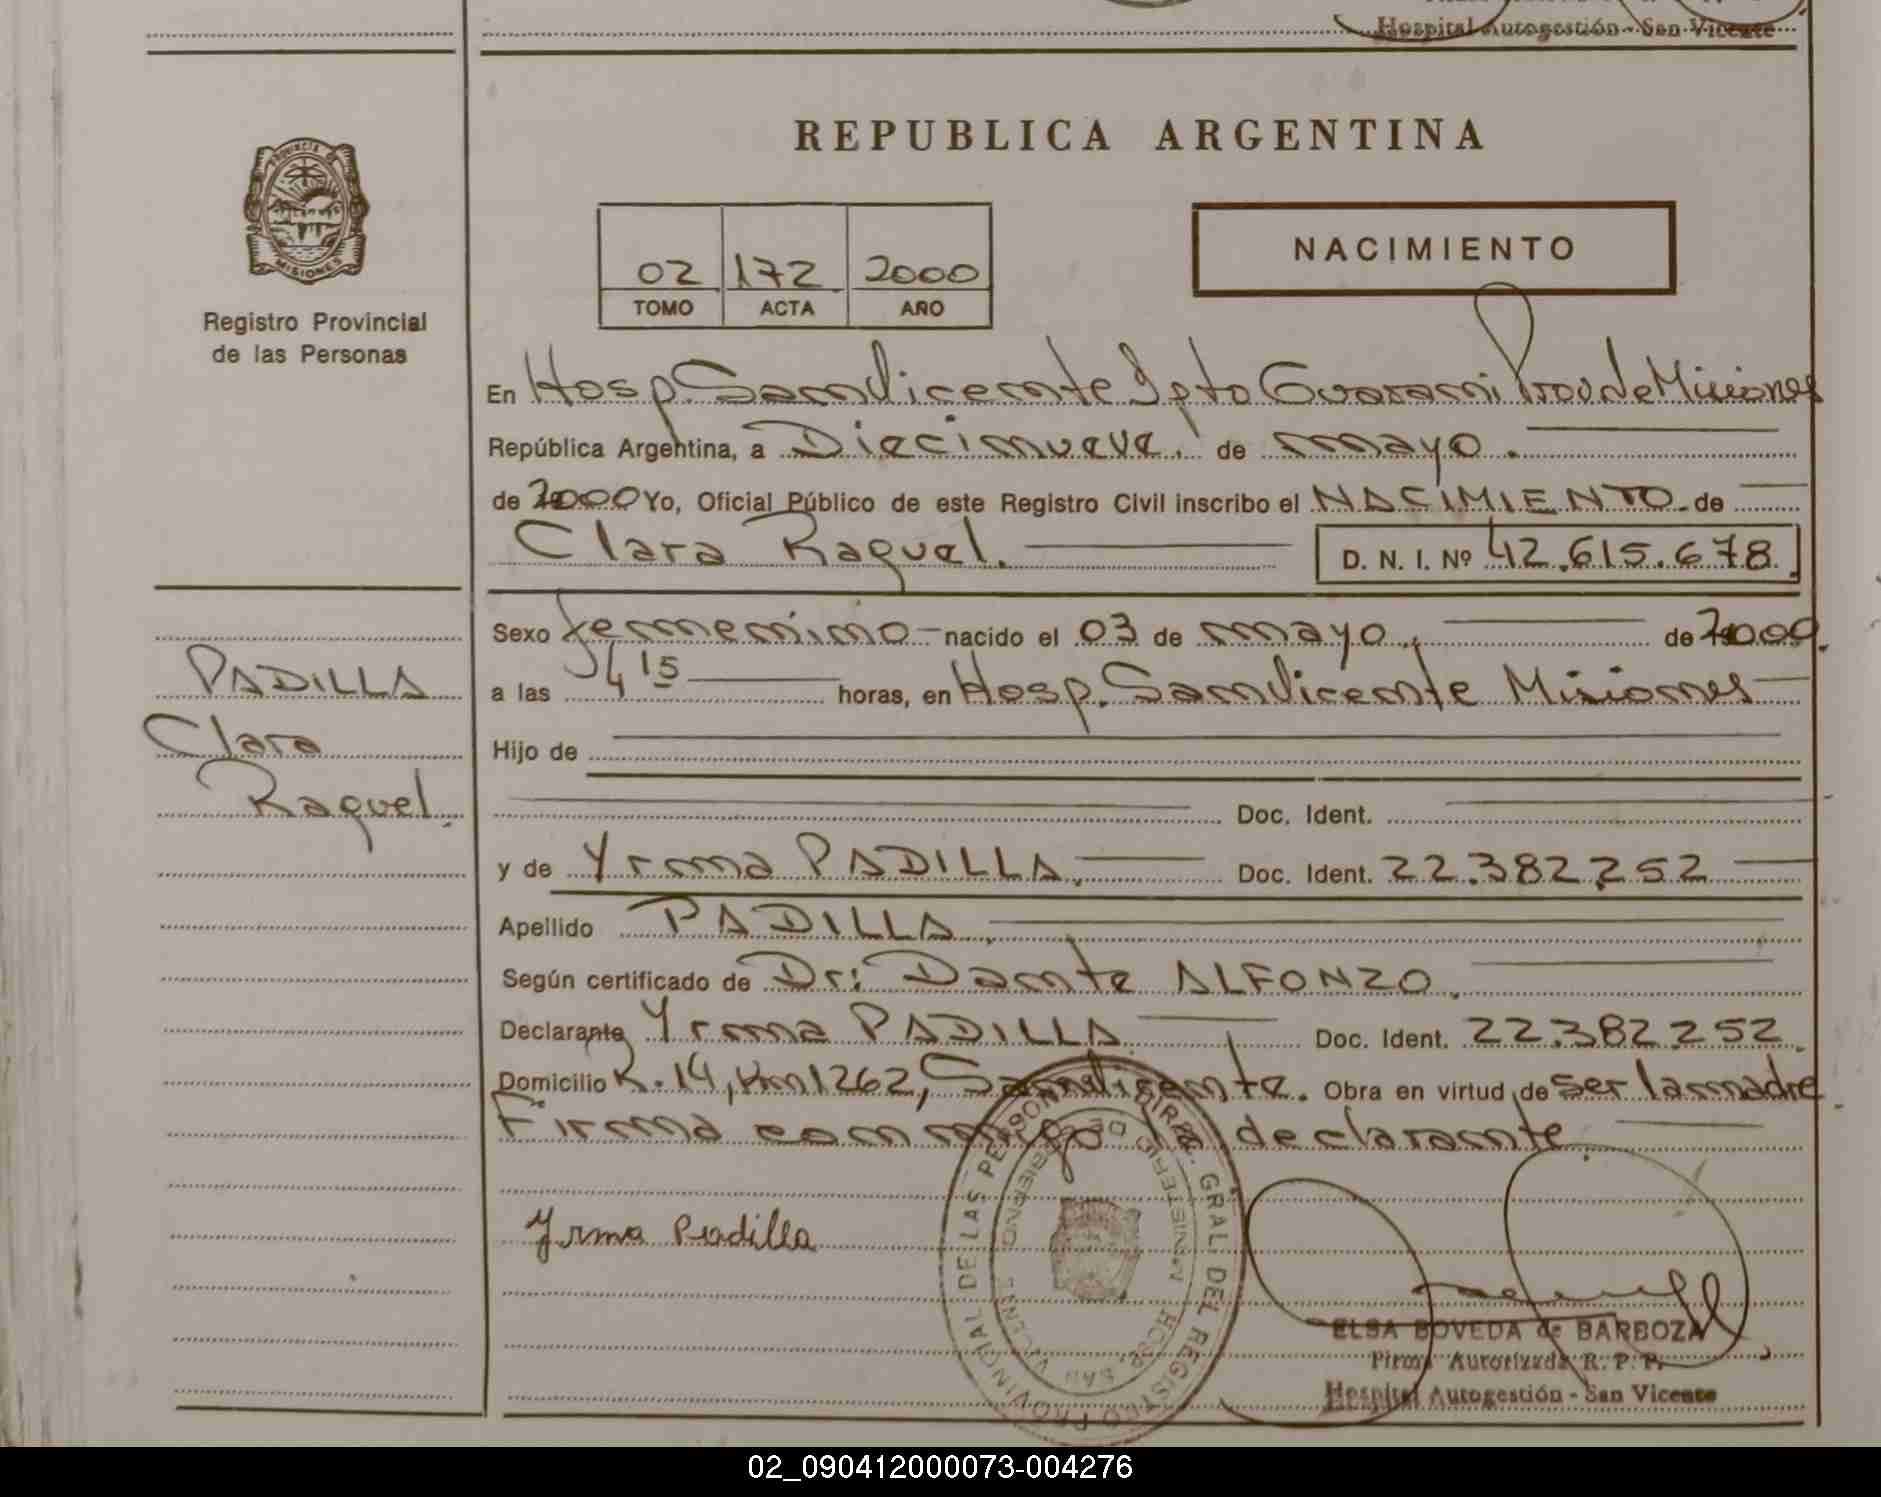 Hospital Autogestión - San Vicente
REPUBLICA ARGENTINA
PROVINCIA DE
MISIONES
NACIMIENTO
02 172 2000
TOMO ACTA AÑO
Registro Provincial
de las Personas
En Hosp. San Vicente Dpto Guarani Prov de Misiones
República Argentina, a Diecinueve. de mayo.
de 2000 Yo, Oficial Público de este Registro Civil inscribo el NACIMIENTO de
Clara Raquel. D. N. I. Nº 42.615.678.
Sexo femenino nacido el 03 de mayo, de 2000.
a las 4 15 horas, en Hosp. San Vicente Misiones
Hijo de
Doc. Ident.
y de Yrma PADILLA. Doc. Ident. 22.382.252
Apellido PADILLA.
Según certificado de Dr: Dante ALFONZO.
Declarante Yrma PADILLA. Doc. Ident. 22.382.252.
Domicilio R. 14, Km 1262, San Vicente. Obra en virtud de ser la madre.
Firma conmigo la declarante.
PADILLA
Clara
Raquel.
Yrma Padilla
DIREC. GRAL. DEL REGISTRO PROVINCIAL DE LAS PERSONAS
MINISTERIO DE GOBIERNO
HOSP. SAN VICENTE
ELSA BOVEDA de BARBOZA
Firma Autorizada R. P. P.
Hospital Autogestión - San Vicente
02_090412000073-004276